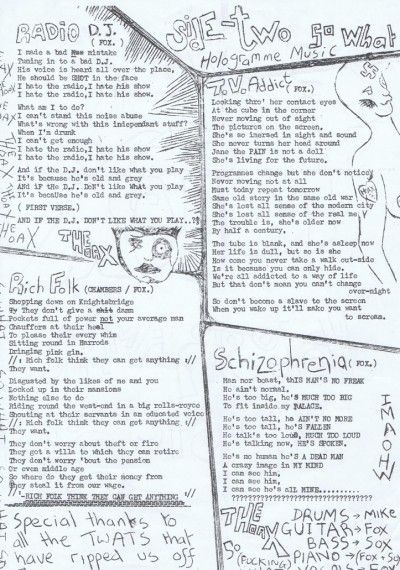 side-two So What
Hologramme Music
RADIO D.J.
( FOX.)
I made a bad mistake
Tuning in to a bad D.J.
His voice is heard all over the place,
He should be SHOT in the face
I hate the radio,I hate his show
I hate the radio,I hate his show.
What am I to do?
I can't stand this noise abuse
What's wrong with this independant stuff?
When I'm drunk
I can't get enough
I hate the radio,I hate his show
I hate the radio,I hate his show.
And if the D.J. don't like what you play
It's because he's old and grey
AND if the D.J. DoN't like WHat you play
It's because he's old and grey.
( FIRST VERSE.)
AND IF THE D.J. DON'T LIKE WHAT YOU PLAY..??
THE AX
T.V. Addict (FOX.)
Looking thro' her contact eyes
At the cube in the corner
Never moving out of sight
The pictures on the screen.
She's so inersed in sight and sound
She never turns her head around
Jane the PAIN is not a doll
She's living for the future.
Programmes change but she don't notice
Never moving not at all
Must today repeat tomorrow
Same old story in the same old war
She's lost all sense of the modern city
She's lost all sense of the real me
The trouble is, she's older now
By half a century.
The tube is blank, and she's asleep now
Her life is dull, but so is she
How come you never take a walk out-side
Is it because you can only hide.
We're all addicted to a way of life
But that don't mean you can't change
over-night
So don't become a slave to the screen
When you wake up it'll make you want
to scream.
Rich Folk (CHAMBERS / FOX.)
Shopping down on Knightsbridge
They don't give a damn
Pockets full of power not your average man
Chauffors at their heel
To please their every whim
Sitting round in Harrods
Dringing pink gin.
//: Rich folk think they can get anything ://
They want.
Disgusted by the likes of me and you
Locked up in their mansions
Nothing else to do
Riding round the west-end in a big rolls-royce
Shouting at their servants in an educated voice
//: Rich folk think they can get anything ://
They want.
They don't worry about theft or fire
They got a villa to which they can retire
They don't worry 'bout the pension
Or even middle age
So where do they get their money from
They steal it from our wage.
-RICH FOLK THINK THEY CAN GET ANYTHING
Schizophrenia (FOX.)
Man nor beast, THIS MAN'S NO FREAK
He ain't normal.
He's too big, HE'S MUCH TOO BIG
To fit inside my PALACE.
He's too tall, he AIN'T NO MORE
He's too tall, he'S FALLEN
He talk's too loud, MUCH TOO LOUD
He's talking now, HE'S SPOKEN.
He's no human he'S A DEAD MAN
A crazy image in MY MIND
I can see him,
I can see him,
I can see he's all MINE.........
????????????????????????????????
THE AX
DRUMS → MIKE
GUITAR → FOX
BASS → SOX
PIANO → (FOX + SOX
VOCALS → FOX
SO (FUCKING) WHAT
Special thanks to
all the TWATS that
have ripped us off